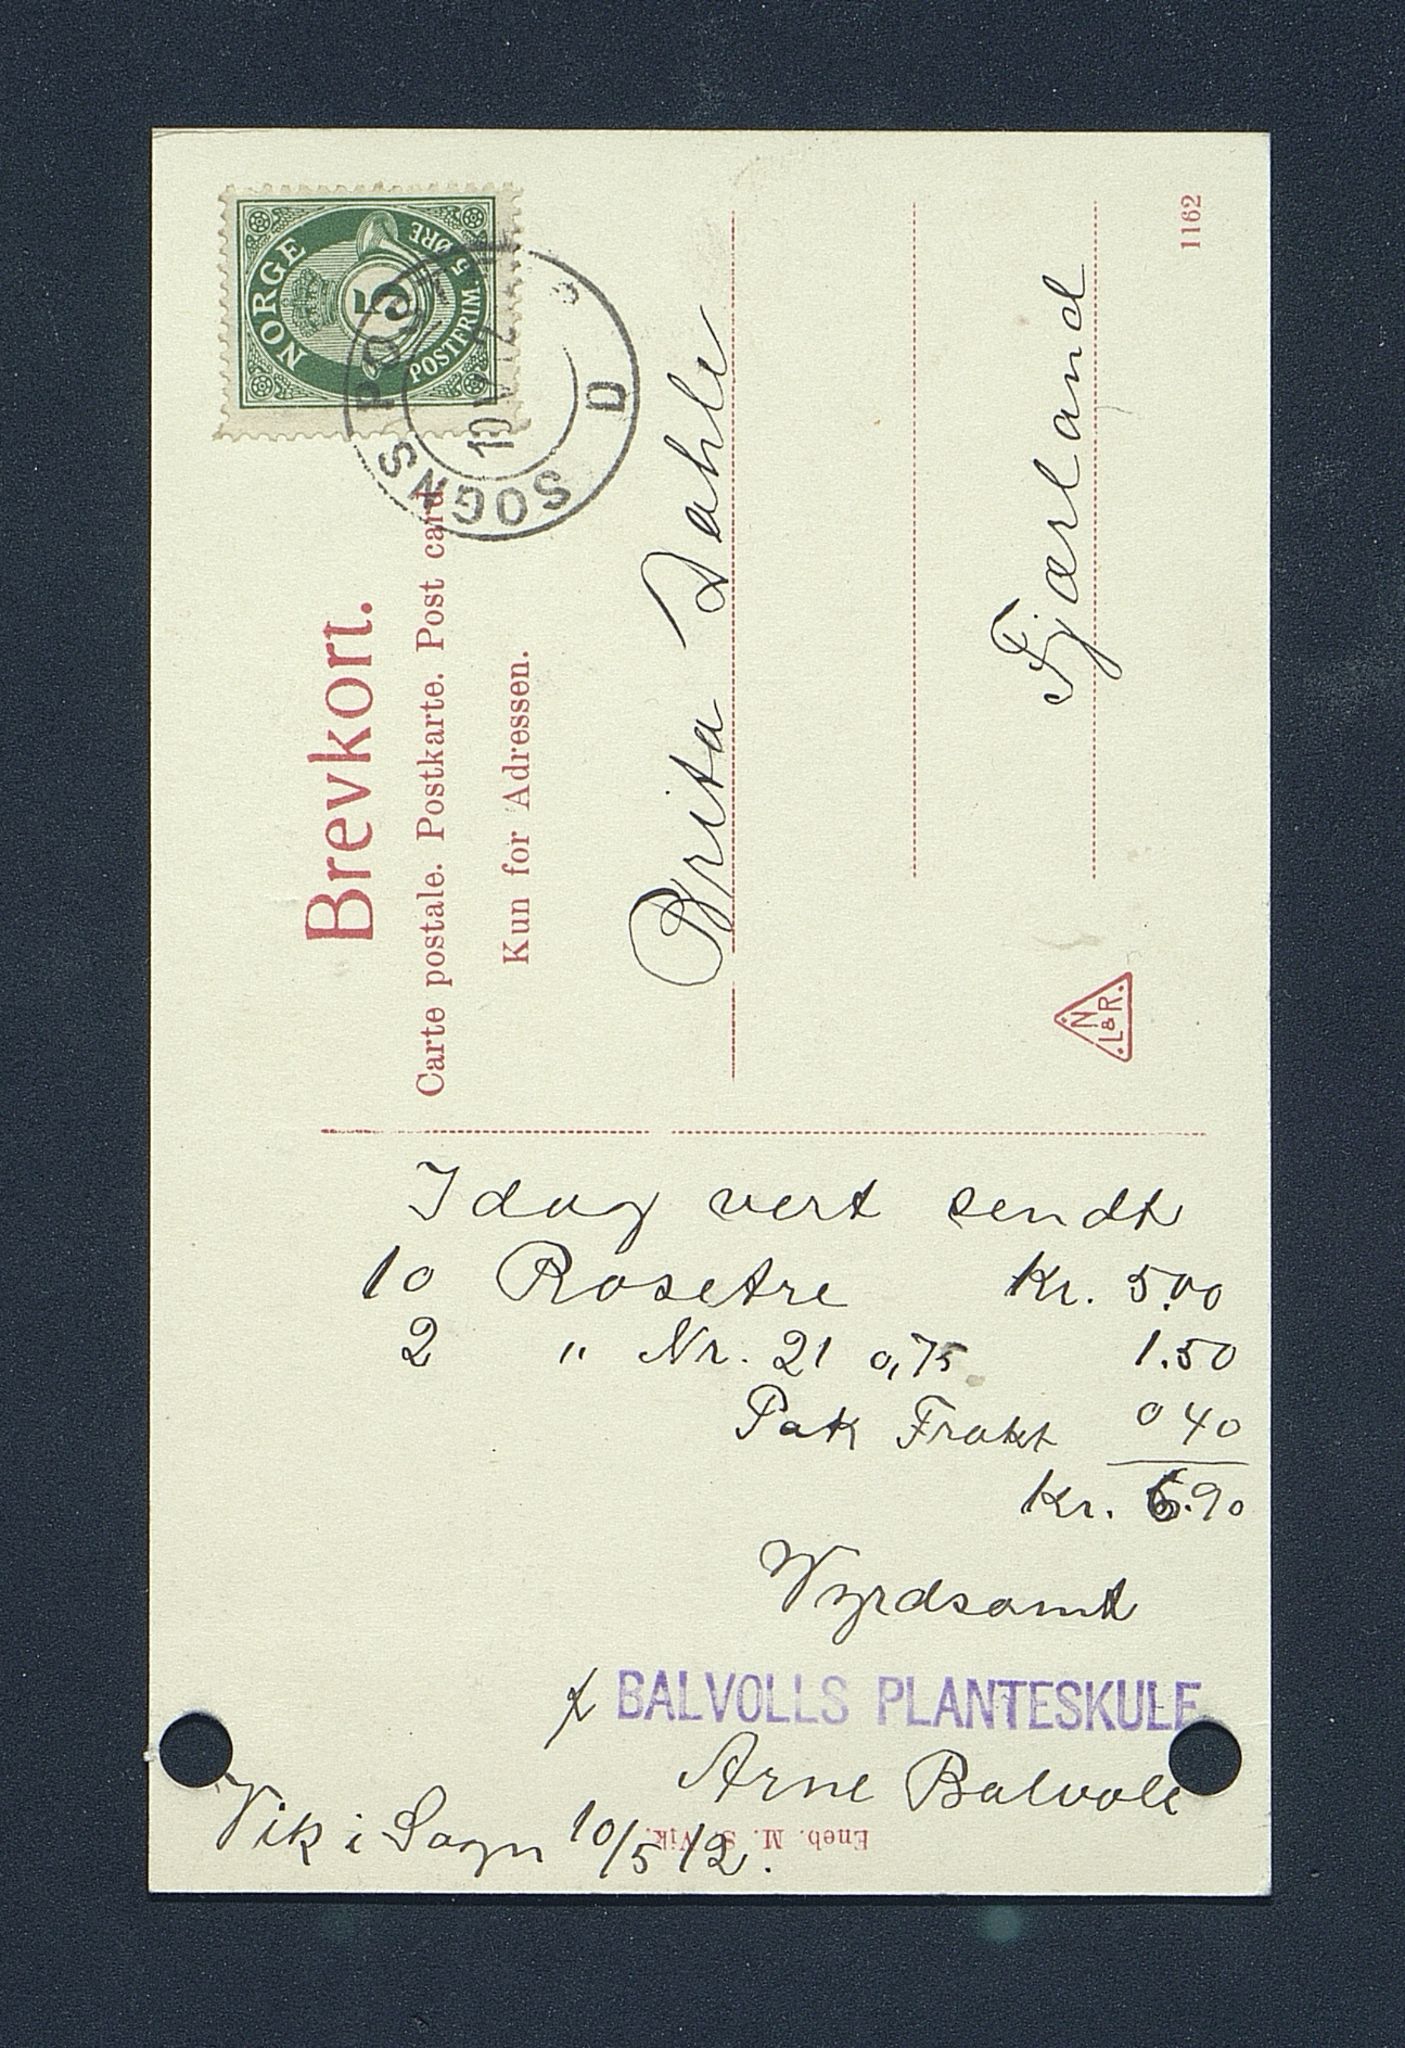 NORGE
5
POSTFRIM. 5 ØRE
SOGNS
D
Brevkort.
Carte postale. Postkarte. Post card.
Kun for Adressen.
Brita Dahle
Fjærland
1162
N
L&R.
Idag vert sendt
10 Rosetre Kr. 5.00
2 " Nr. 21 0,75 1.50
Pak Frakt 0 40
Kr. 6.90
Vyrdsamt
f BALVOLLS PLANTESKULE
Arne Balvoll
Vik i Sogn 10/5 12.
Eneb. M. S. Vik.